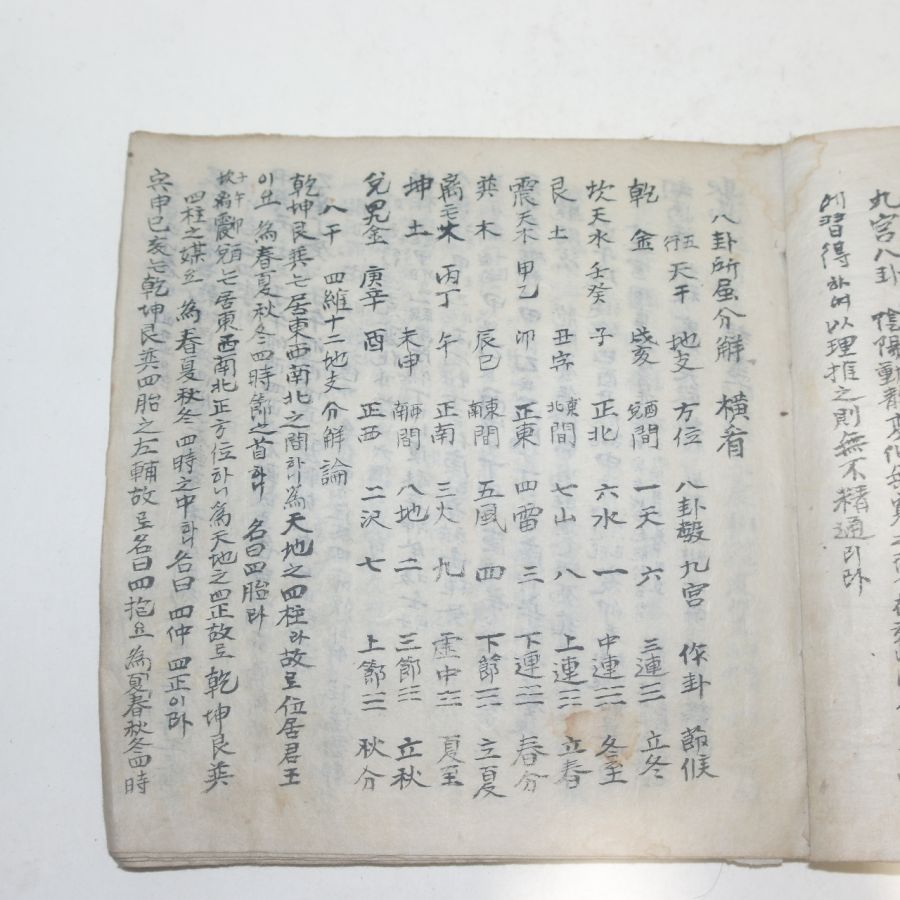 九宮八卦 陰陽動靜變化
에習得하여以理推之則無不精通리라
八卦所屬分解 橫看
五行 天干 地支 方位 八卦數 九宮 作卦 節候
乾 金 戌亥 酉間 一天 六 三連三 立冬
坎 天水 壬癸 子 正北 六水 一 中連 冬至
艮 土 丑寅 東北間 七山 八 上連 立春
震 天木 甲乙 卯 正東 四雷 三 下連 春分
巽 木 辰巳 東南間 五風 四 下節 立夏
離 火 丙丁 午 正南 三火 九 虛中 夏至
坤 土 未申 西南間 八地 二 三節 立秋
兌 金 庚辛 酉 正西 二沢 七 上節 秋分
八干 四維十二地支分解論
乾坤艮巽는居東西南北之間하니為天地之四柱라故로位居君王
이요 為春夏秋冬四時節之首하니 名曰四胎라
子午卯酉 坎离震兌는居東西南北正方位하니為天地之四正故로 乾坤艮巽
四柱之媒요 為春夏秋冬四時之中하니 名曰 四仲 四正이라
寅申巳亥는乾坤艮巽四胎之左輔故로名曰四抱요為夏春秋冬四時